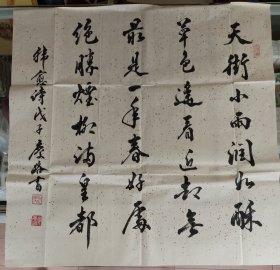 天街小雨润如酥
草色遥看近却无
最是一年春好处
绝胜烟柳满皇都
韩愈诗戊子
书